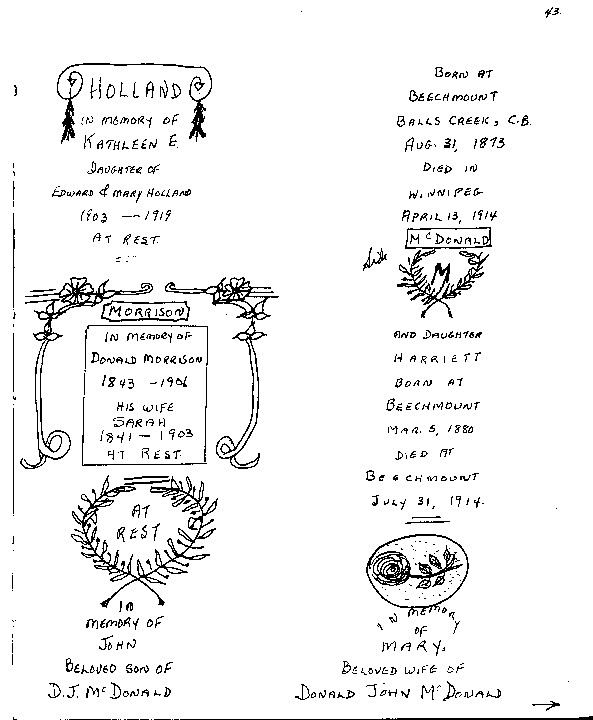 43.
HOLLAND
IN MEMORY OF
KATHLEEN E.
DAUGHTER OF
EDWARD & MARY HOLLAND
1903 — 1919
AT REST
MORRISON
IN MEMORY OF
DONALD MORRISON
1843 - 1906
HIS WIFE
SARAH
1841 - 1903
AT REST
AT
REST
IN
MEMORY OF
JOHN
BELOVED SON OF
D.J. McDONALD
BORN AT
BEECHMOUNT
BALLS CREEK, C.B.
AUG. 31, 1873
DIED IN
WINNIPEG
APRIL 13, 1914
McDONALD
Side
M
AND DAUGHTER
HARRIETT
BORN AT
BEECHMOUNT
MAR. 5, 1880
DIED AT
BEECHMOUNT
JULY 31, 1914.
IN MEMORY
OF
MARY.
BELOVED WIFE OF
DONALD JOHN McDONALD